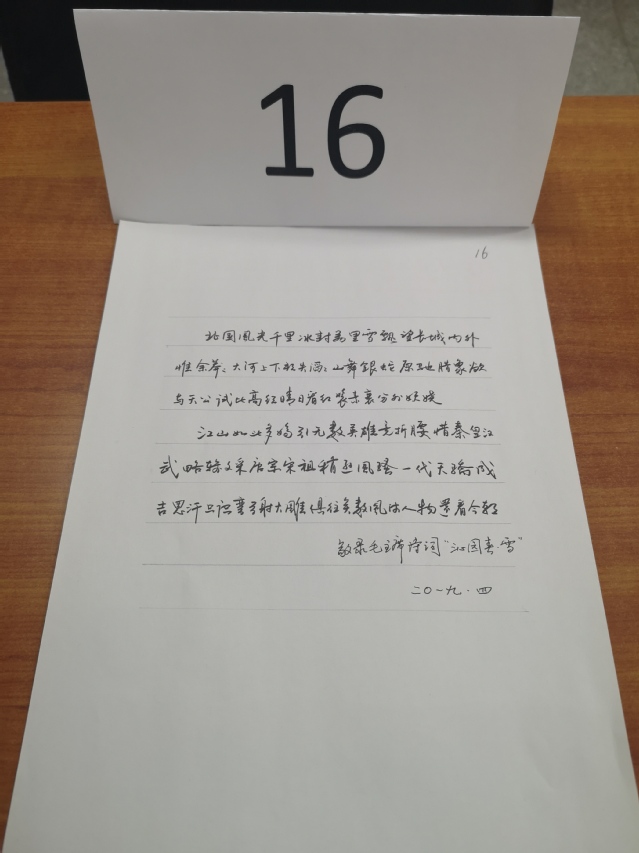 16
16
北国風光千里冰封万里雪飘望长城内外
惟余莽々大河上下顿失滔々山舞銀蛇原驰腊象欲
与天公试比高须晴日看红装素裹分外妖娆
江山如此多娇引无数英雄竞折腰惜秦皇汉
武略输文采唐宗宋祖稍逊風骚一代天骄成
吉思汗只识弯弓射大雕俱往矣数風流人物還看今朝
敬录毛主席诗词"沁园春·雪"
二〇一九·四